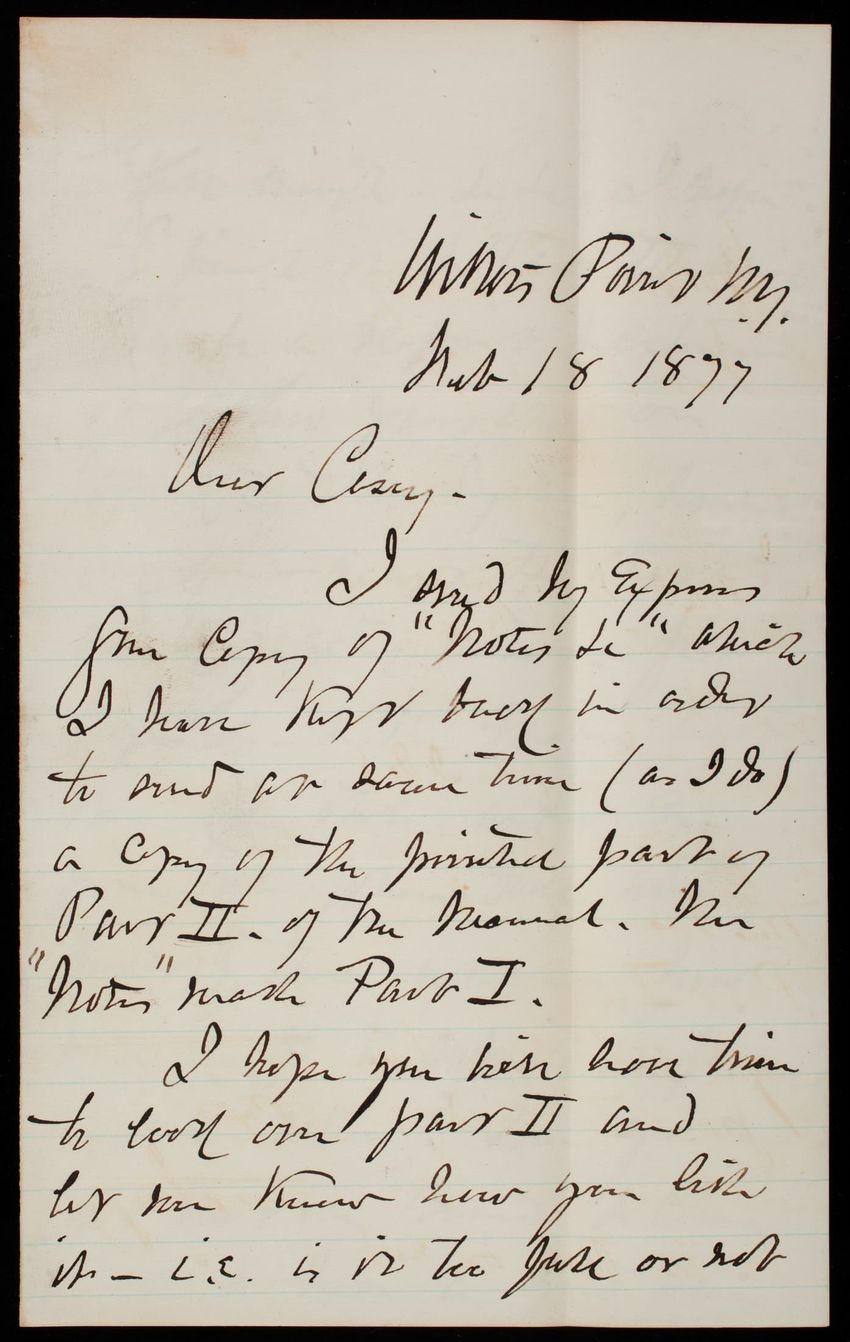 Willets Point N.Y.
Feb 18 1877
Dear Casey -
I send by Express
your Copy of "Notes &c" which
I have kept back in order
to send at same time (as I do)
a copy of the printed part of
Part II. of the Manual. The
"Notes" make Part I.
I hope you will have time
to look over part II and
let me know how you like
it - i.e. is it too full or not